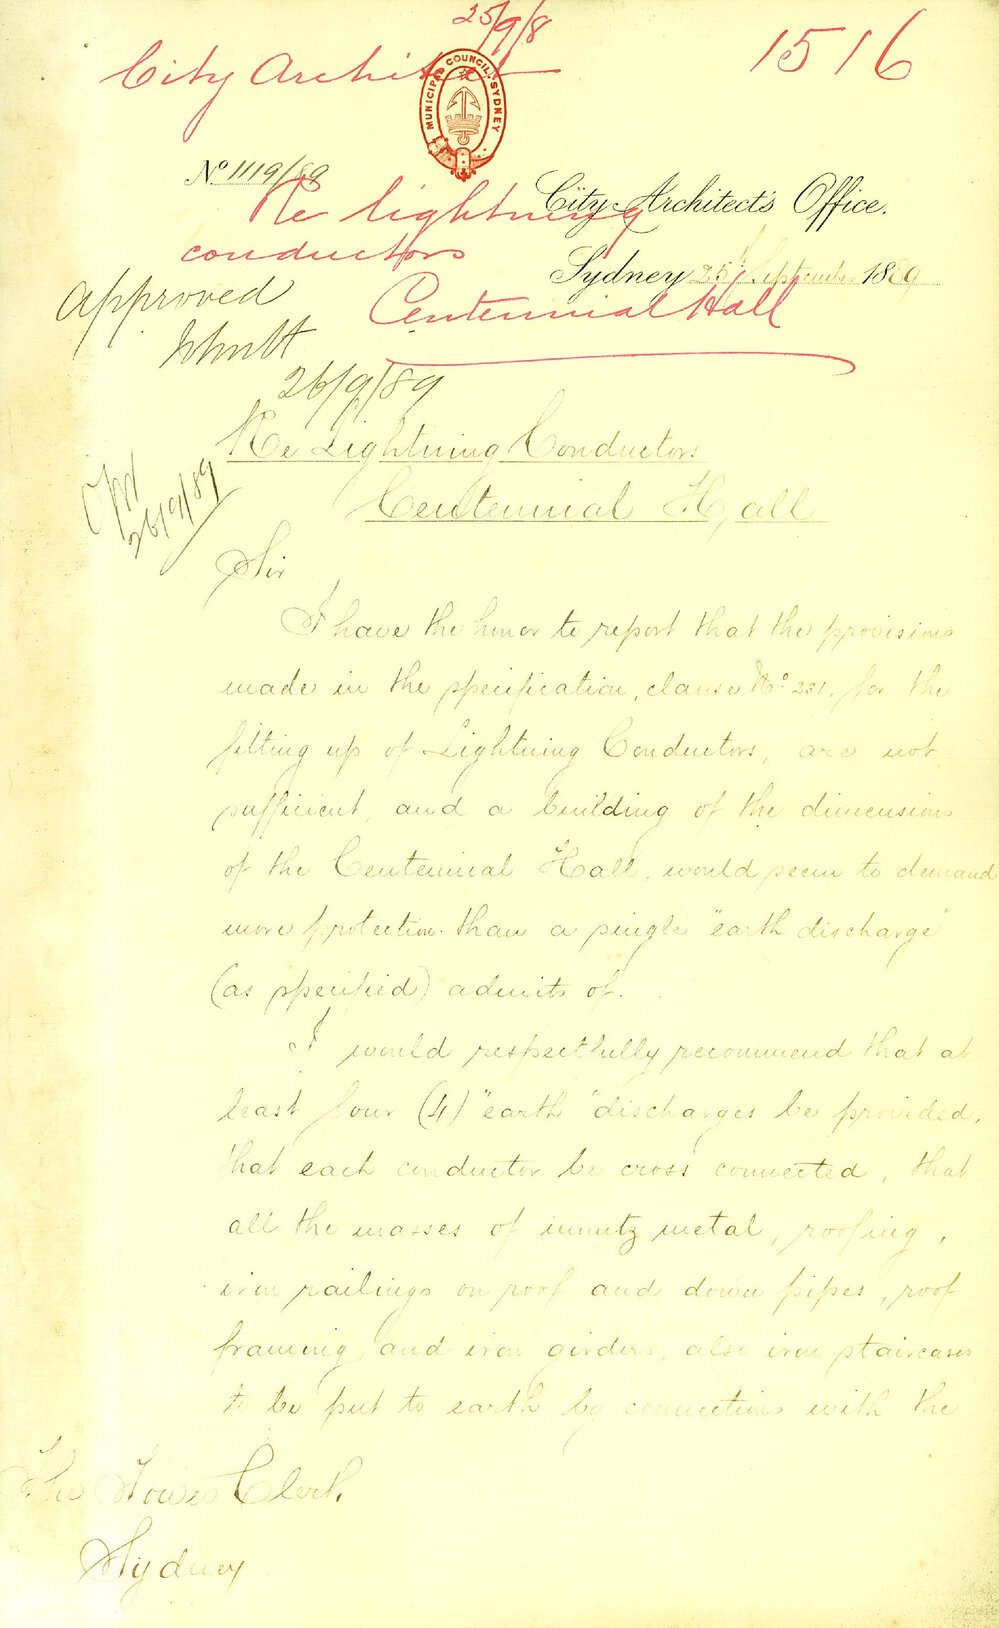 25/9/8
City Architect
1516
MUNICIPAL COUNCIL SYDNEY
No 1119/89
City Architect's Office.
Re lightning
conductors
Sydney 25 September 1889
Centennial Hall
Approved
26/9/89
Re Lightning Conductors
Centennial Hall
26/9/89
Sir
I have the honor to report that the provisions
made in the specification, clause No. 231. for the
fitting up of Lightning Conductors, are not
sufficient, and a building of the dimensions
of the Centennial Hall, would seem to demand
more protection than a single "earth discharge"
(as specified) admits of.
I would respectfully recommend that at
least four (4) "earth" discharges be provided,
that each conductor be cross connected, that
all the masses of muntz metal, roofing,
iron railings on roof and down pipes, roof
framing, and iron girders, also iron staircases
to be put to earth by connections with the
The Town Clerk,
Sydney